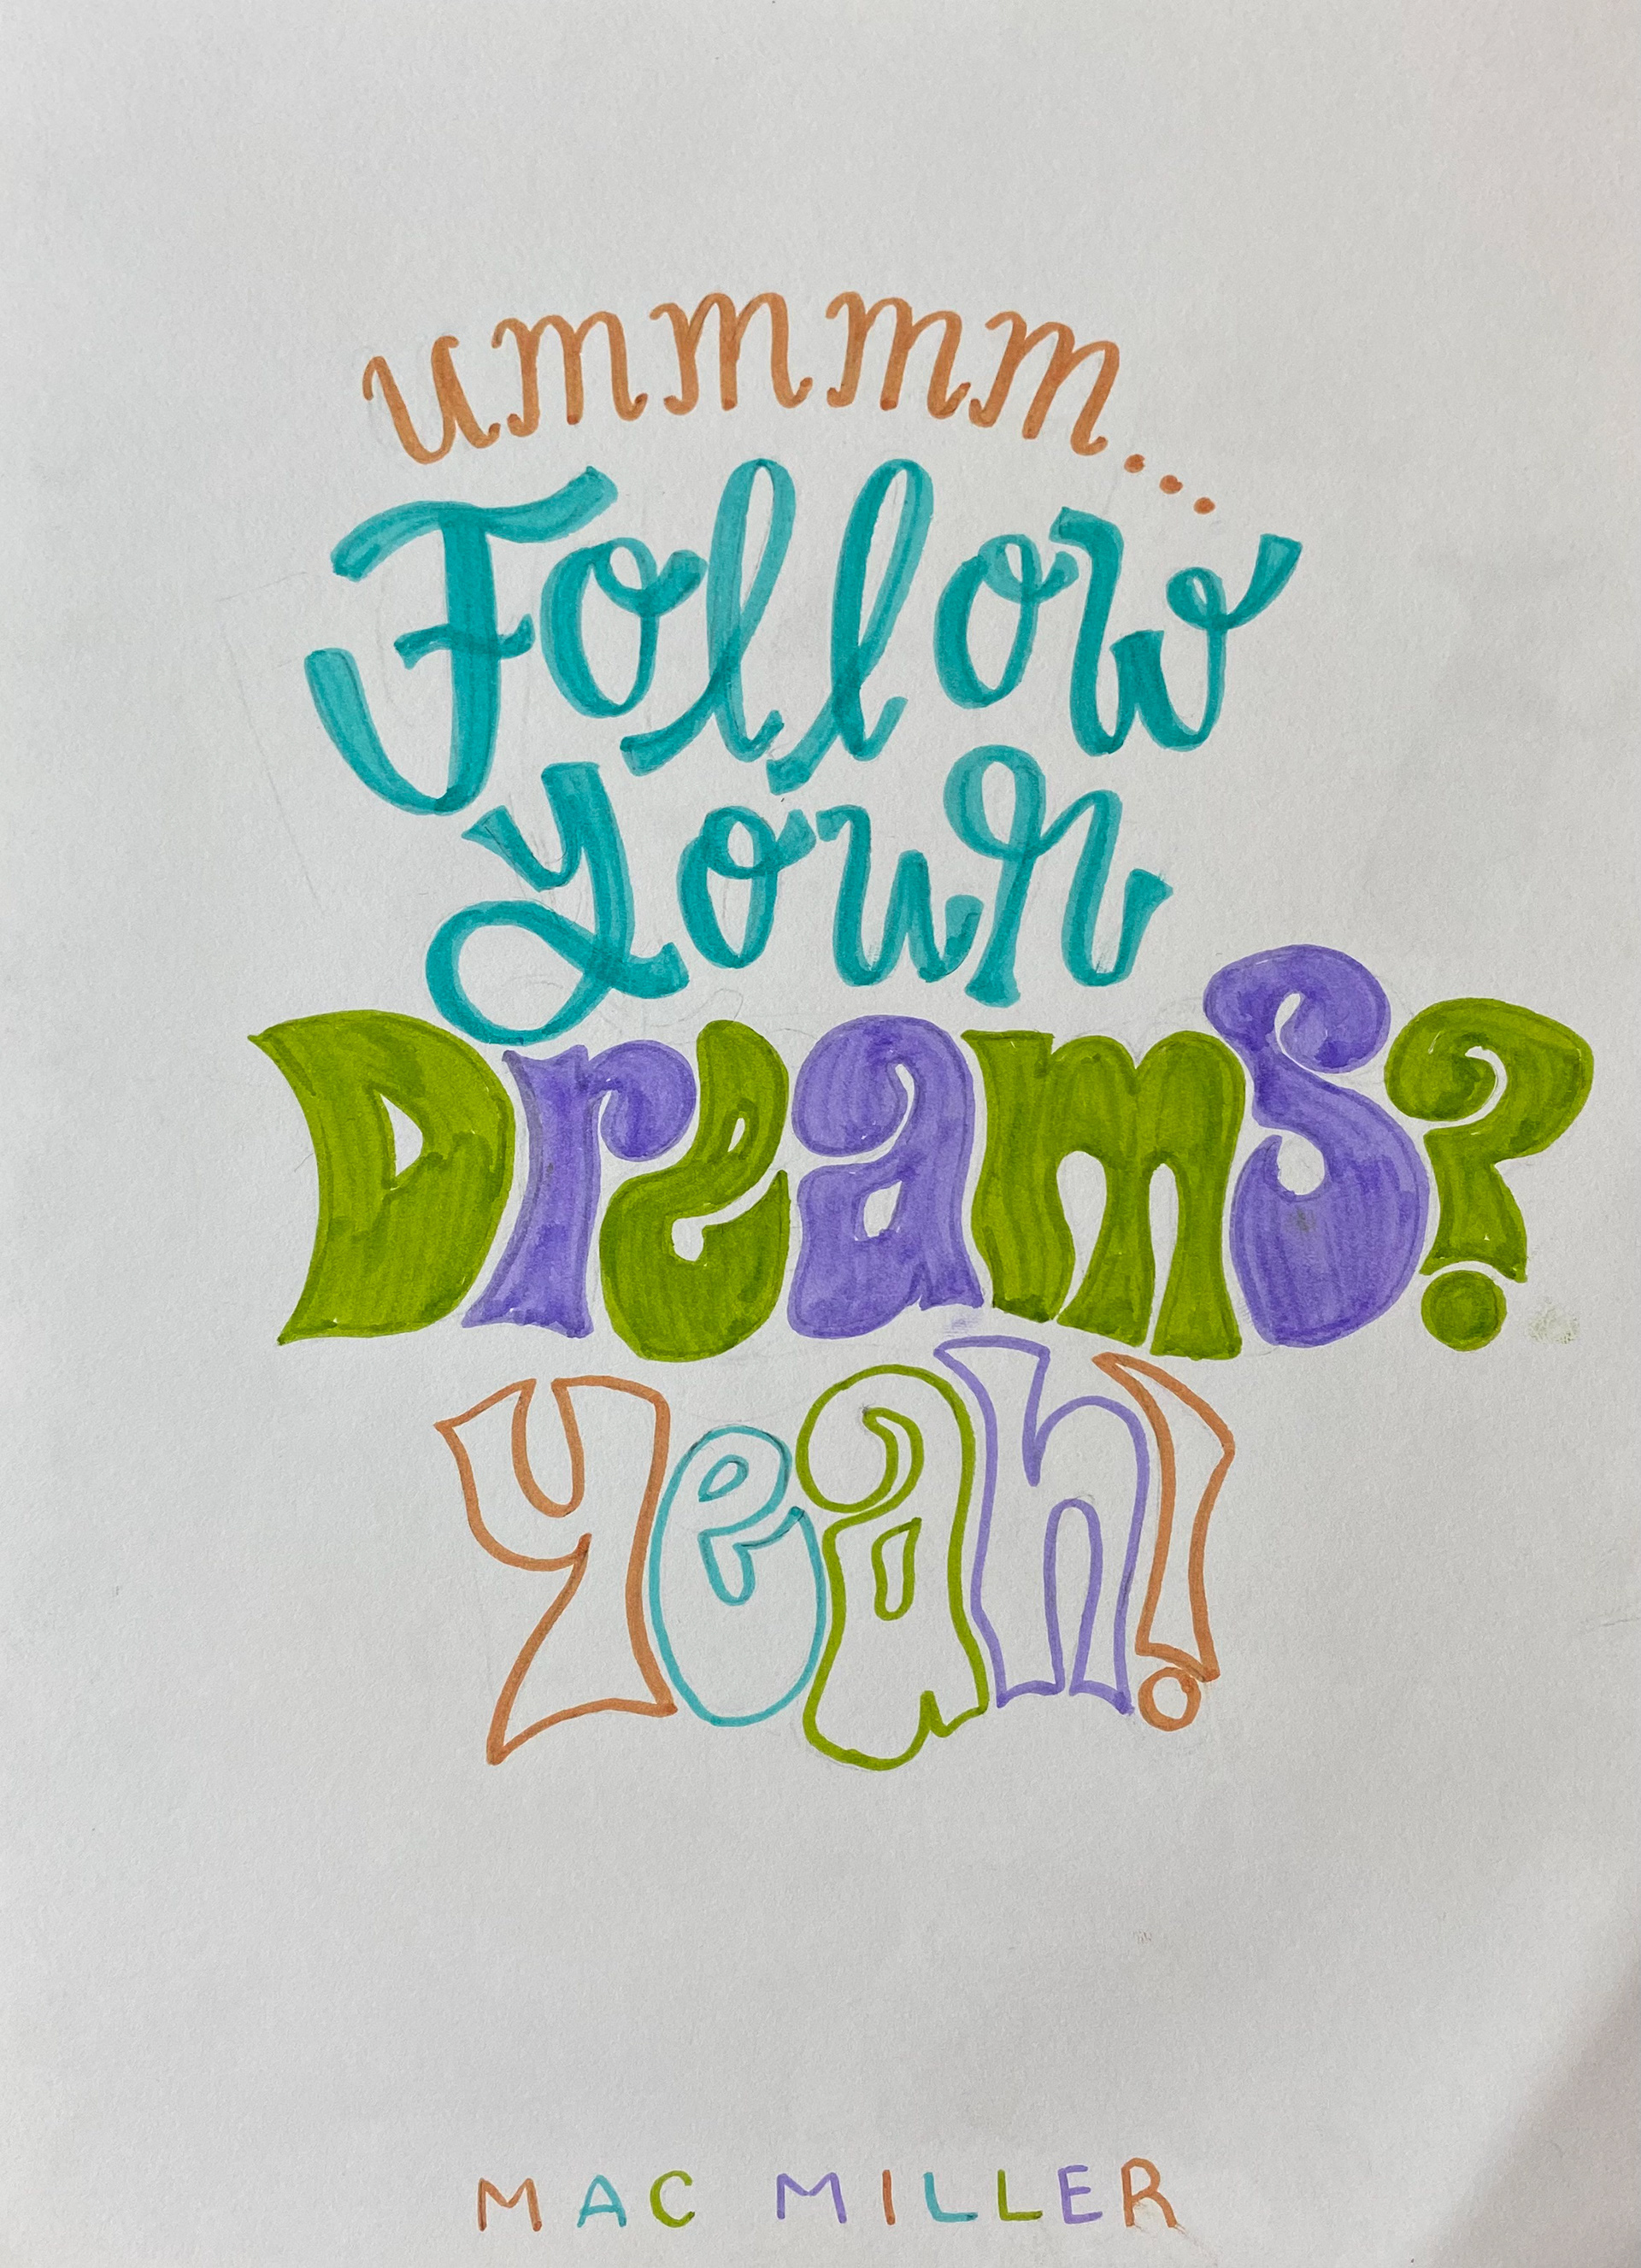 ummmm...
Follow
your
Dreams?
yeah!
MAC MILLER